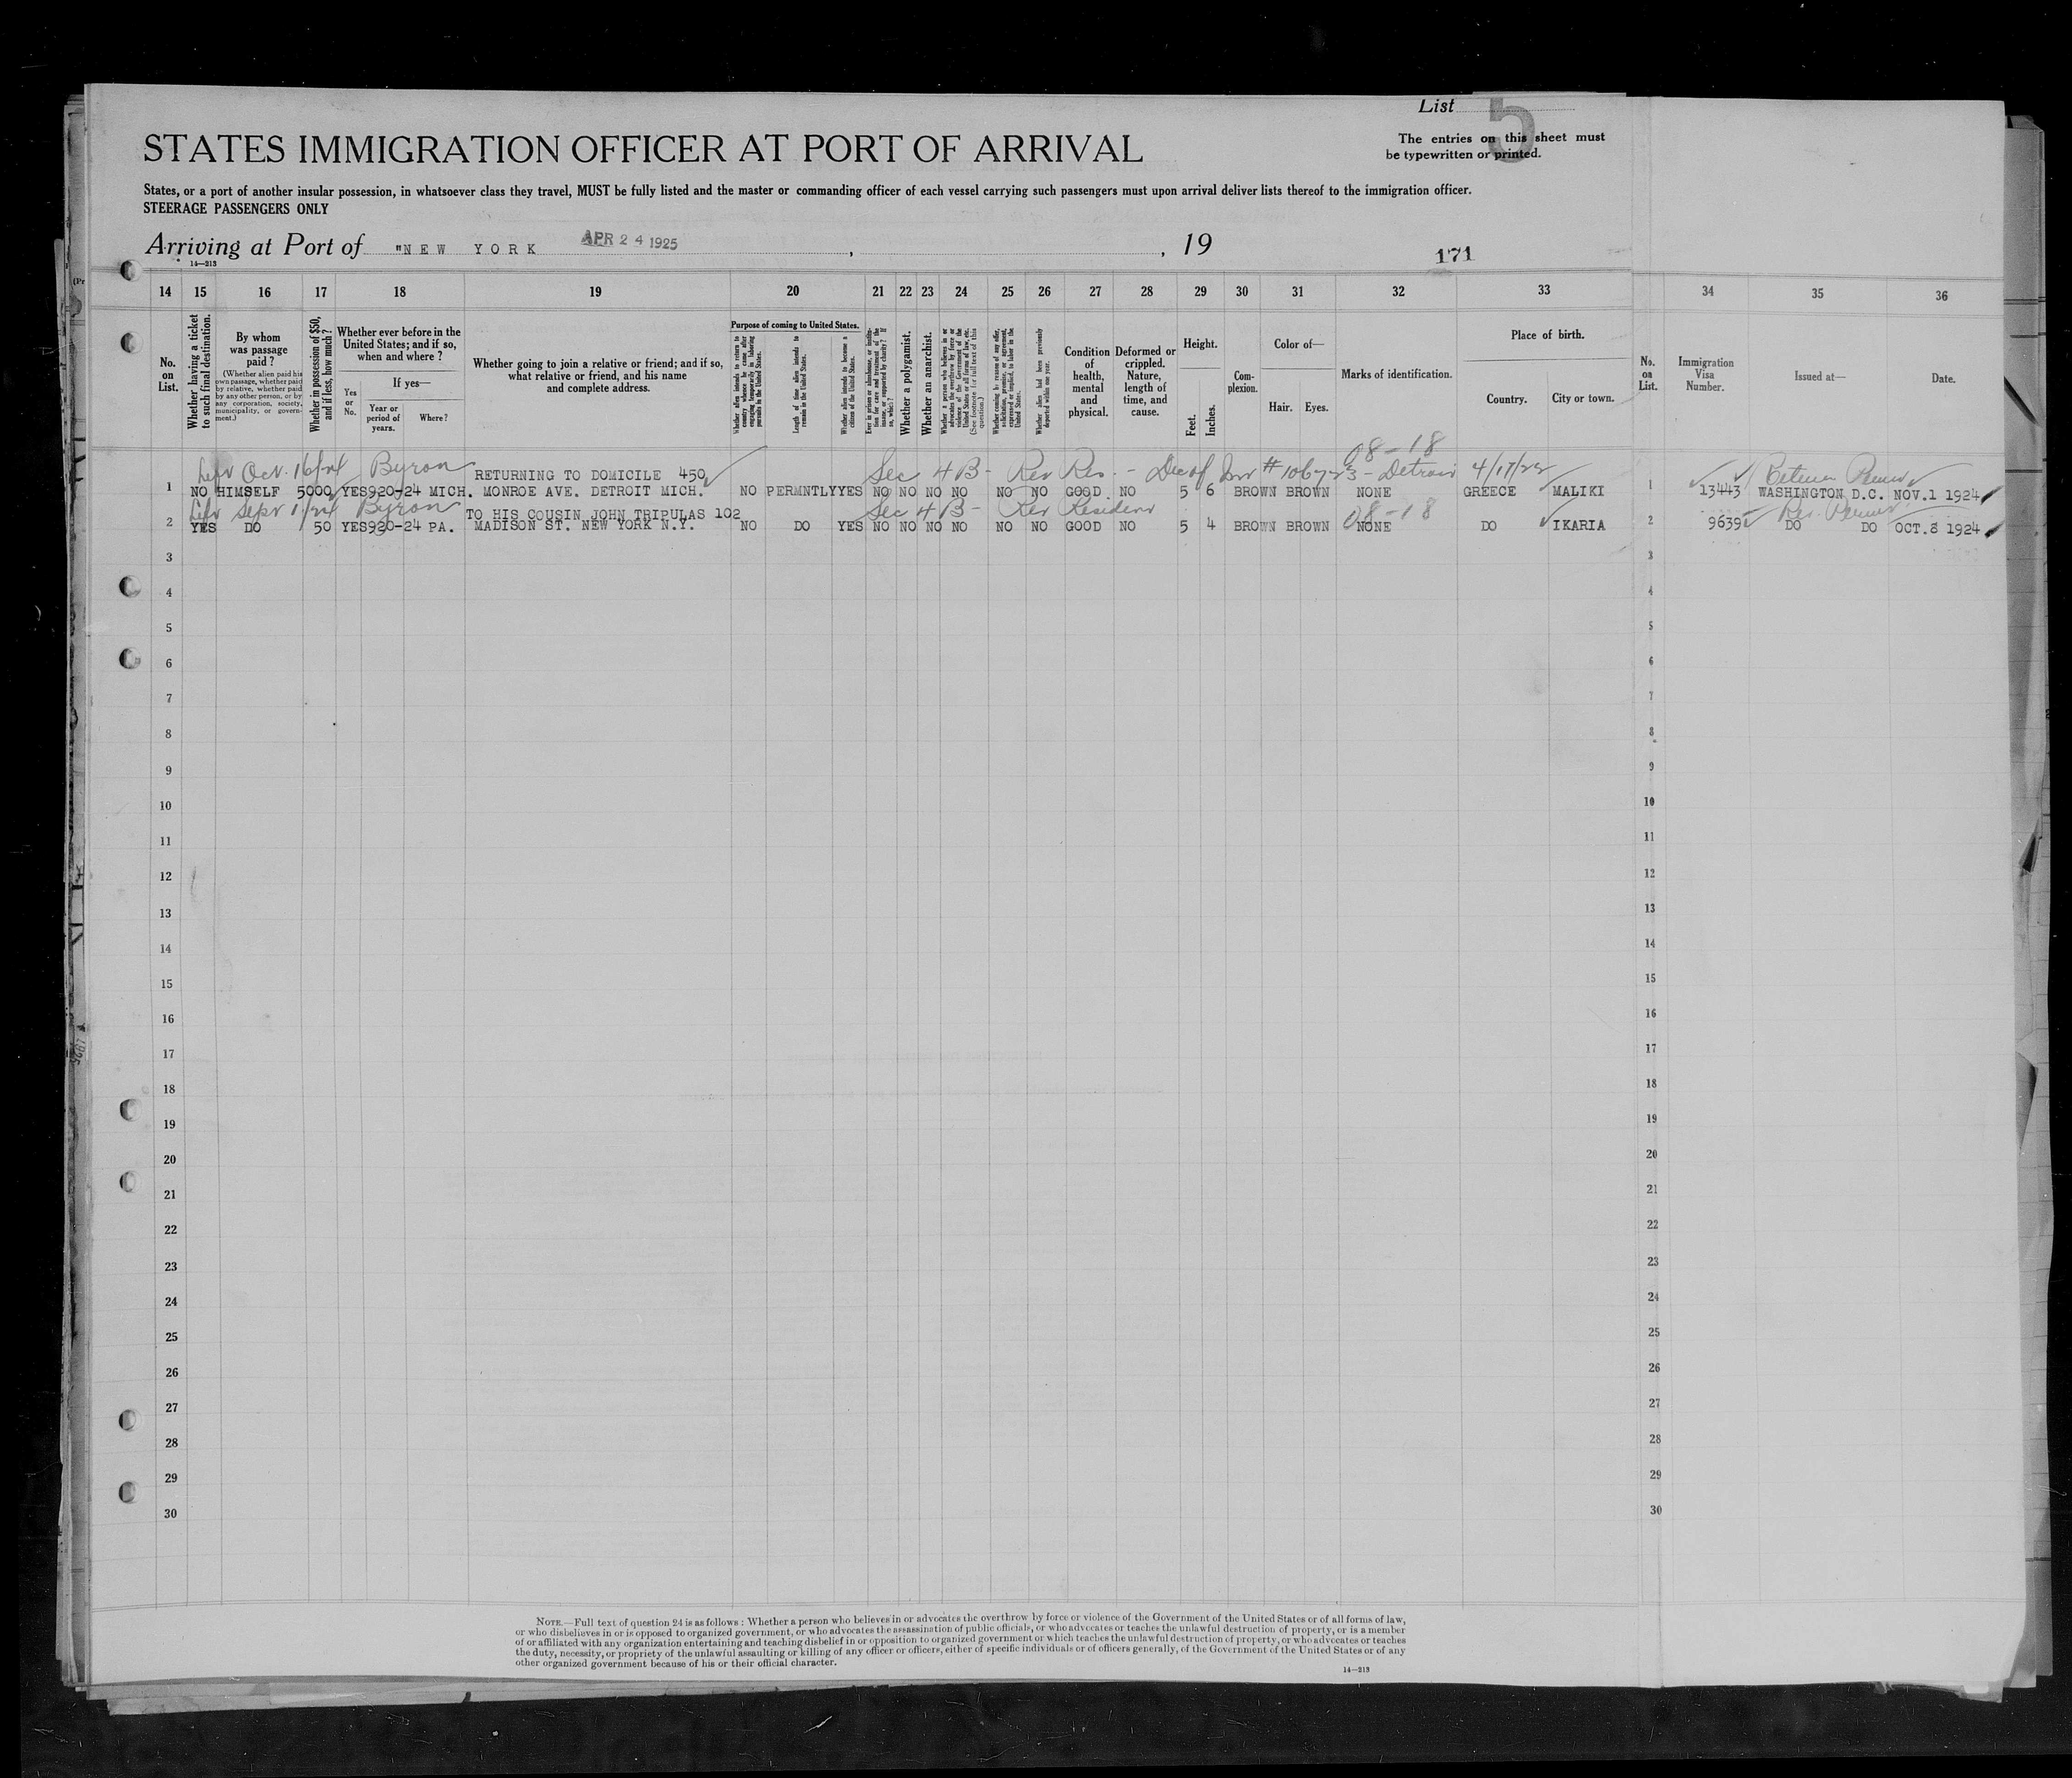 List 5
STATES IMMIGRATION OFFICER AT PORT OF ARRIVAL
The entries on this sheet must
be typewritten or printed.
States, or a port of another insular possession, in whatsoever class they travel, MUST be fully listed and the master or commanding officer of each vessel carrying such passengers must upon arrival deliver lists thereof to the immigration officer.
STEERAGE PASSENGERS ONLY
Arriving at Port of "NEW YORK APR 24 1925, , 19
171
14—213
14 15 16 17 18 19 20 21 22 23 24 25 26 27 28 29 30 31 32 33 34 35 36
No. on List.
Whether having a ticket to such final destination.
By whom was passage paid?
(Whether alien paid his own passage, whether paid by relative, whether paid by any other person, or by any corporation, society, municipality, or government.)
Whether in possession of $50, and if less, how much?
Whether ever before in the United States; and if so, when and where?
Yes or No.
If yes—
Year or period of years.
Where?
Whether going to join a relative or friend; and if so, what relative or friend, and his name and complete address.
Purpose of coming to United States.
Whether alien intends to return to country whence he came after engaging temporarily in laboring pursuits in the United States.
Length of time alien intends to remain in the United States.
Whether alien intends to become a citizen of the United States.
Whether a polygamist.
Whether an anarchist.
Whether coming by reason of any offer, solicitation, promise, or agreement, expressed or implied, to labor in the United States.
Whether alien had been previously deported within one year.
Condition of health, mental and physical.
Deformed or crippled. Nature, length of time, and cause.
Height.
Feet. Inches.
Complexion.
Color of—
Hair. Eyes.
Marks of identification.
Place of birth.
Country. City or town.
No. on List.
Immigration Visa Number.
Issued at—
Date.
Oct. 16/24 Byron Sec 4 B - Ret Res. - Dec of Int - Detroit 08-18
1 NO HIMSELF 5000 YES 920-24 MICH. RETURNING TO DOMICILE 450 MONROE AVE. DETROIT MICH. NO PERMNTLY YES NO NO NO NO NO NO GOOD NO 5 6 BROWN BROWN NONE GREECE MALIKI 1 13443 WASHINGTON D.C. NOV.1 1924
Sept Byron Sec 4 B - Ret Resident 08-18
2 YES DO 50 YES 920-24 PA. TO HIS COUSIN JOHN TRIPULAS 102 MADISON ST. NEW YORK N.Y. NO DO YES NO NO NO NO NO NO GOOD NO 5 4 BROWN BROWN NONE DO IKARIA 2 9639 DO DO OCT.8 1924
3 3
4 4
5 5
6 6
7 7
8 8
9 9
10 10
11 11
12 12
13 13
14 14
15 15
16 16
17 17
18 18
19 19
20 20
21 21
22 22
23 23
24 24
25 25
26 26
27 27
28 28
29 29
30 30
NOTE.—Full text of question 24 is as follows: Whether a person who believes in or advocates the overthrow by force or violence of the Government of the United States or of all forms of law,
or who disbelieves in or is opposed to organized government, or who advocates the assassination of public officials, or who advocates or teaches the unlawful destruction of property, or is a member
of or affiliated with any organization entertaining and teaching disbelief in or opposition to organized government or which teaches the unlawful destruction of property, or who advocates or teaches
the duty, necessity, or propriety of the unlawful assaulting or killing of any officer or officers, either of specific individuals or of officers generally, of the Government of the United States or of any
other organized government because of his or their official character.
14—213